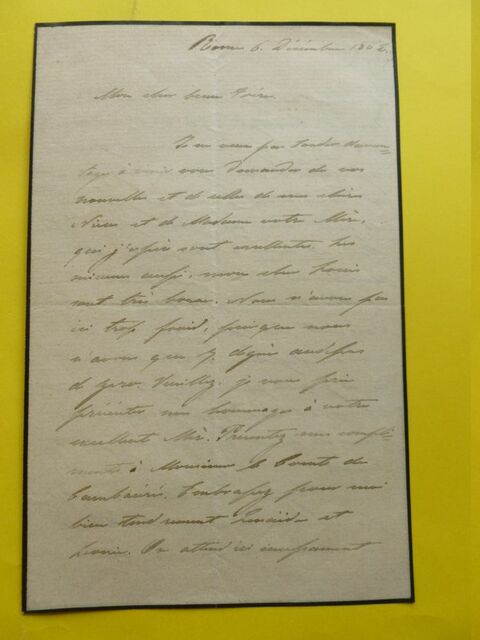 Rome 6. Décembre
Mon cher beau Frère,
Je ne veux pas tarder davan=
tage à venir vous demander de vos
nouvelles et de celles de mes chères
Nièces et de Madame votre Mère,
qui j'espère sont excellentes. Les
miennes aussi, mon cher Louis
sont très bonnes. Nous n'avons pas
ici trop froid, puisque nous
n'avons que 7. degrés
de zero. Veuillez, je vous prie
présenter mes hommages à votre
excellente Mère. Présentez mes compli=
ments à Monsieur le Comte de
Cambacérès. Embrassez pour moi
bien tendrement Zénaïde et
Léonie. On attend ici incessamment